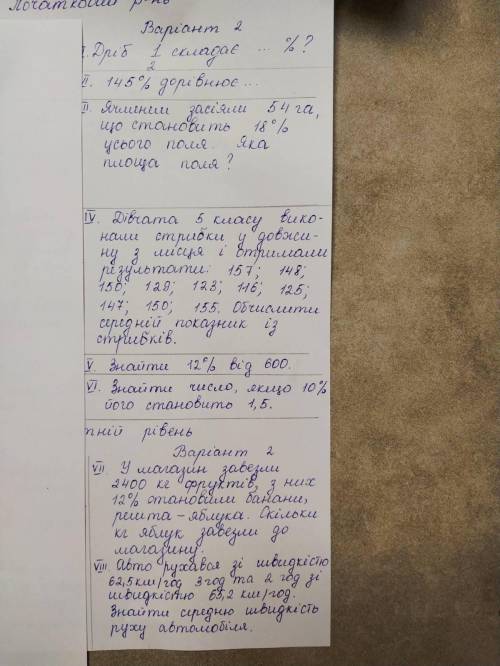 Початковий рівень
Варіант 2
I. Дріб 1 складає ... %?
2
II. 145% дорівнює...
II. Ячменем засіяли 54 га,
що становить 18%
усього поля. Яка
площа поля?
IV. Дівчата 5 класу вико-
нали стрибки у довжи-
ну з місця і отримали
результати: 157; 148;
150; 129; 123; 116; 125;
147; 150; 155. Обчислити
середній показник із
стрибків.
V. Знайти 12% від 600.
VI. Знайти число, якщо 10%
його становить 1,5.
тній рівень
Варіант 2
VII. У магазин завезли
2400 кг фруктів, з них
12% становили банани,
решта – яблука. Скільки
кг яблук завезли до
магазину.
VIII. Авто рухався зі швидкістю
62,5 км/год 3 год та 2 год зі
швидкістю 65,2 км/год.
Знайти середню швидкість
руху автомобіля.